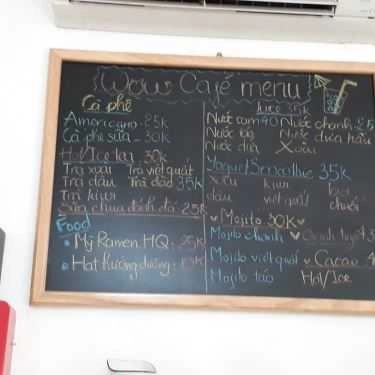 Wow Café menu
Cà phê
Americano 25k
Cà phê sữa 30k
Hot/Ice tea 30k
Trà xoài Trà việt quất
Trà dâu Trà đào 35k
Trà kiwi
Sữa chua đánh đá 25k
Food
Mỳ Ramen HQ 25k
Hạt hướng dương
Juice 35k
Nước cam 40 Nước chanh 25
Nước táo Nước dưa hấu
Nước dứa Xoài
Yogurt Smoothie 35k
Xoài kiwi
dâu việt quất chuối
Mojito 30k
Mojito chanh
Mojito việt quất Cacao
Mojito táo Hot/Ice